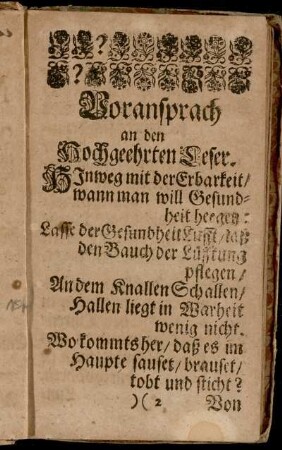 Voransprach
an den
Hochgeehrten Leser.
HInweg mit der Erbarkeit/
wann man will Gesund-
heit heegen:
Lasse der Gesundheit Lufft/ laß
den Bauch der Lüfftung
pflegen/
An dem Knallen Schallen/
Hallen liegt in Warheit
wenig nicht.
Wo kommts her/ daß es im
Haupte sauset/ brauset/
tobt und sticht?
)( 2 Von